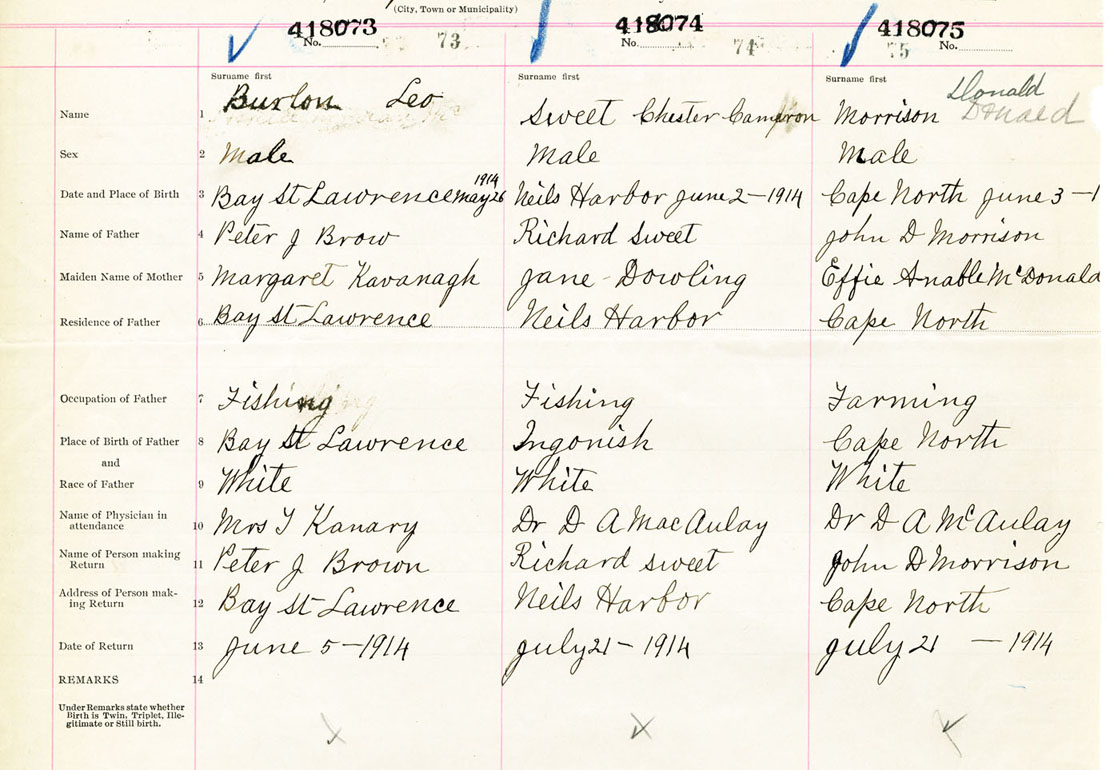 (City, Town or Municipality)
418073 418074 418075
No. 73 No. 74 75 No.
Surname first Surname first Surname first
Donald
Name 1 Burlon Leo Sweet Chester Cameron Morrison Donald
Sex 2 Male Male Male
1914
Date and Place of Birth 3 Bay St Lawrence May 26 Neils Harbor June 2-1914 Cape North June 3-1
Name of Father 4 Peter J Brow Richard Sweet John D Morrison
Maiden Name of Mother 5 Margaret Kavanagh Jane Dowling Effie Anable McDonald
Residence of Father 6 Bay St Lawrence Neils Harbor Cape North
Occupation of Father 7 Fishing Fishing Farming
Place of Birth of Father 8 Bay St Lawrence Ingonish Cape North
and
Race of Father 9 White White White
Name of Physician in
attendance 10 Mrs T Kanary Dr D A MacAulay Dr D A McAulay
Name of Person making
Return 11 Peter J Brown Richard Sweet John D Morrison
Address of Person mak-
ing Return 12 Bay St Lawrence Neils Harbor Cape North
Date of Return 13 June 5-1914 July 21-1914 July 21 - 1914
REMARKS 14
Under Remarks state whether
Birth is Twin, Triplet, Ille-
gitimate or Still birth.